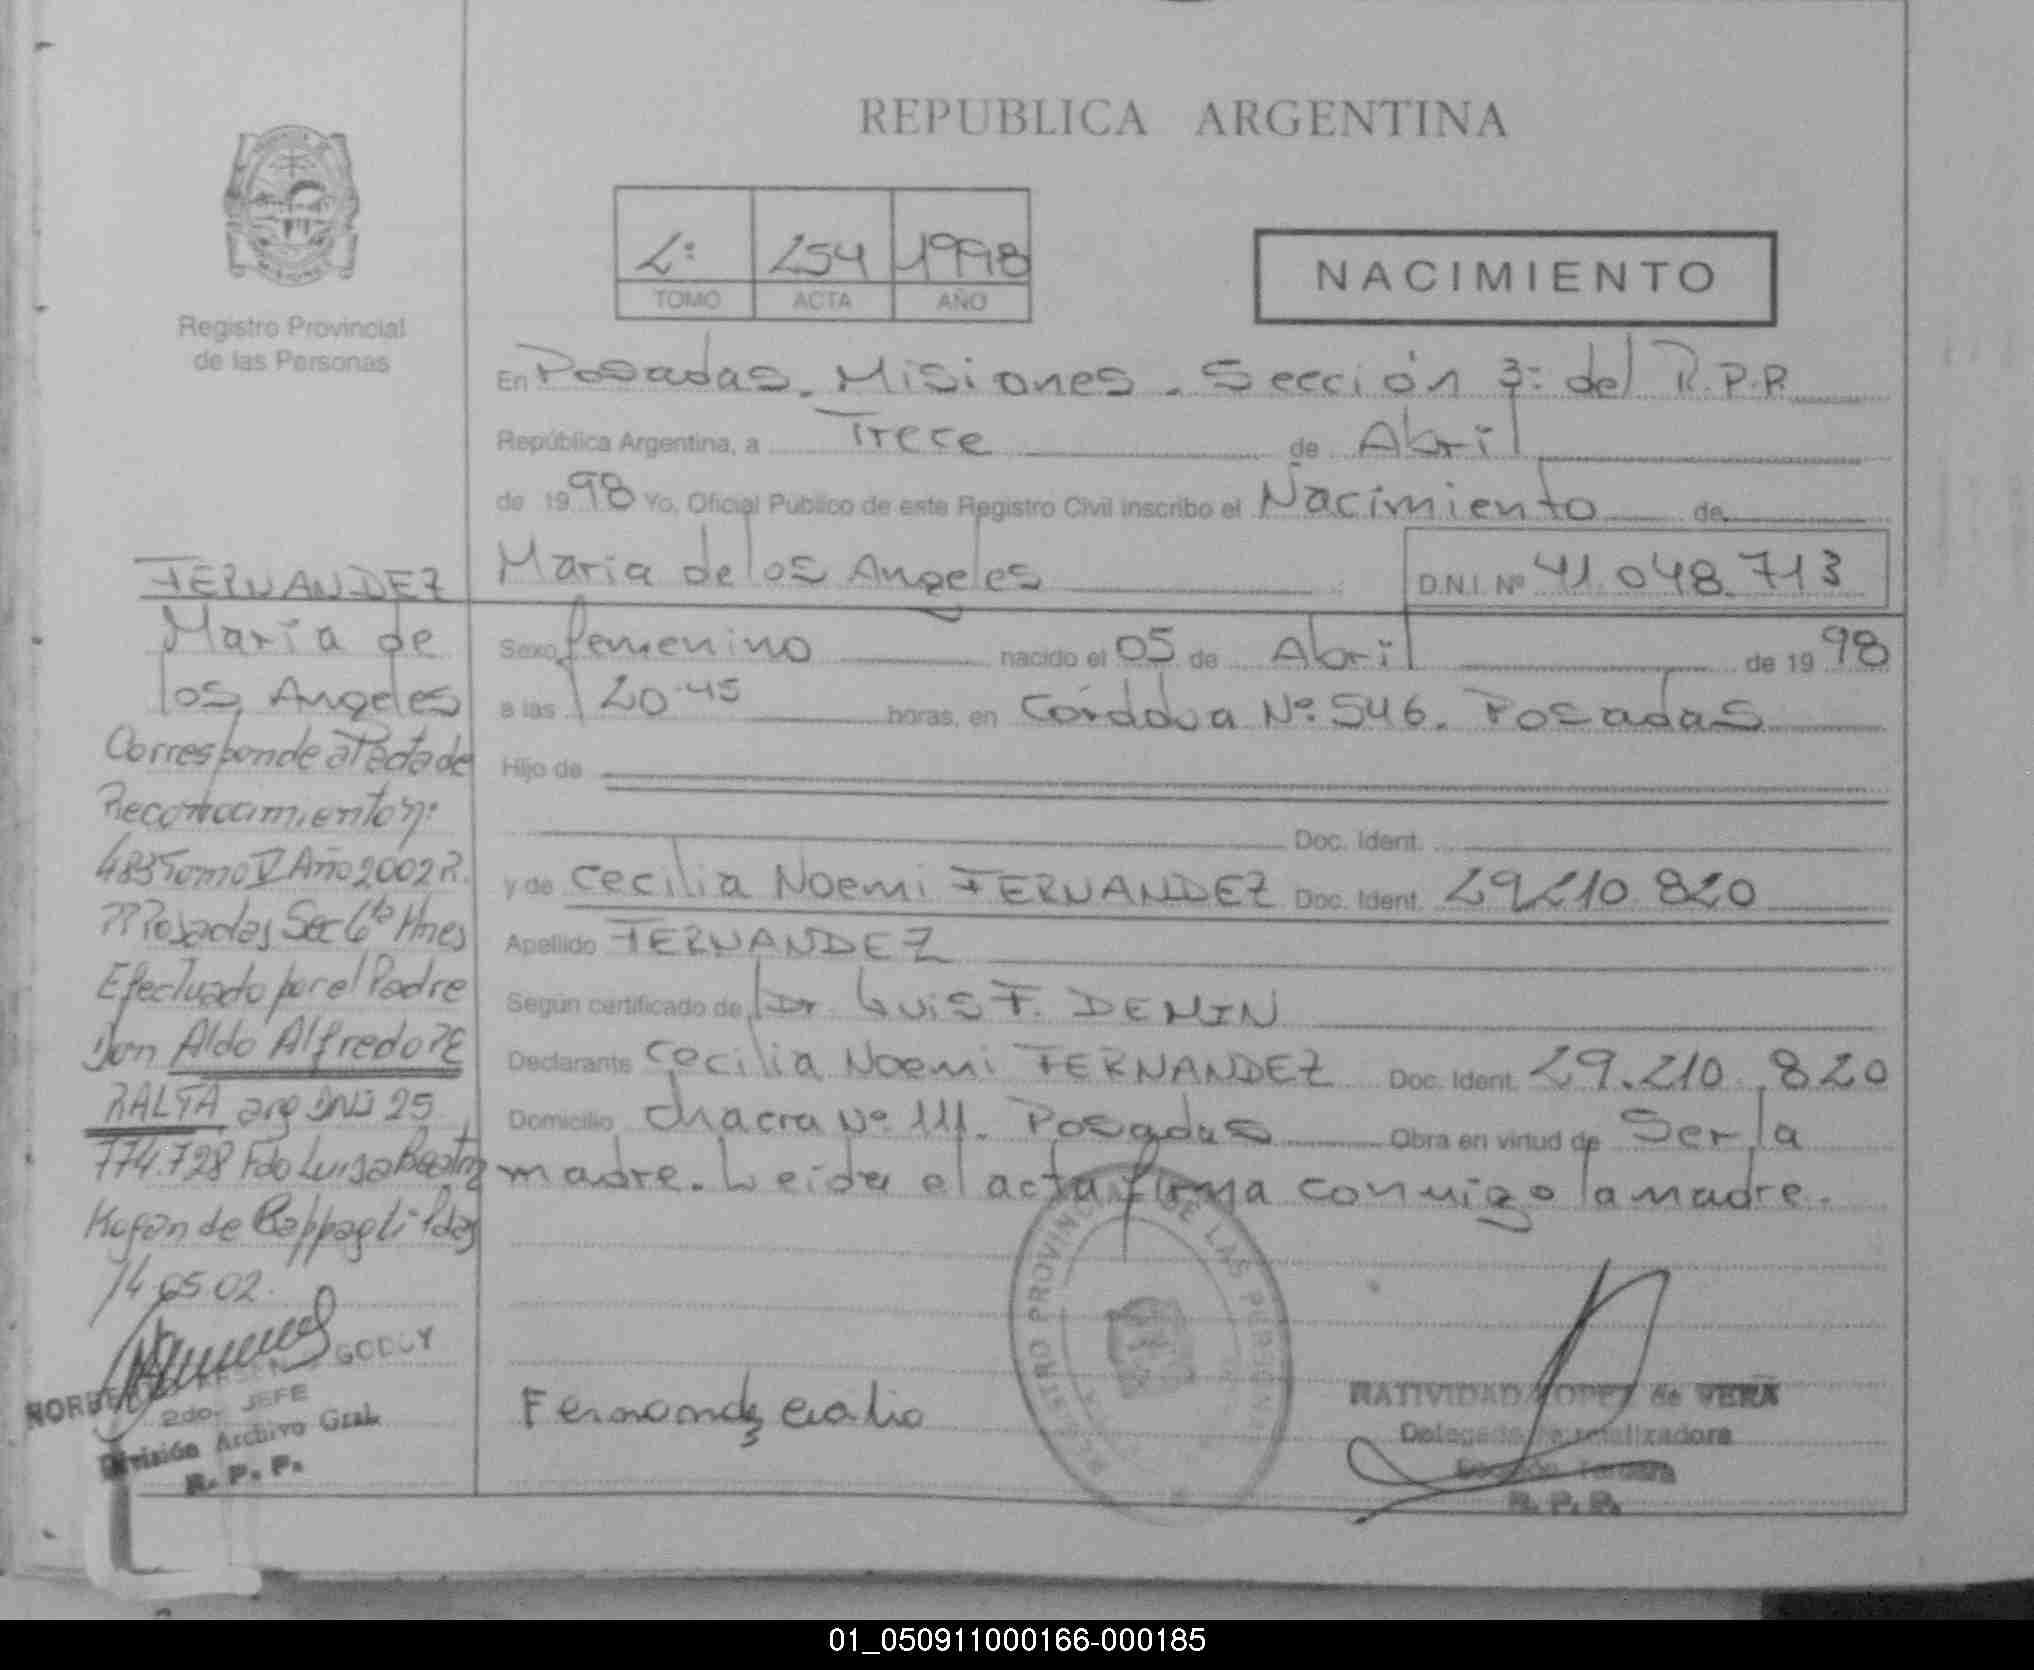 REPUBLICA ARGENTINA
2º 254 1998
TOMO ACTA AÑO
NACIMIENTO
Registro Provincial
de las Personas
En Posadas. Misiones. Sección 3º del R.P.P.
República Argentina, a Trece de Abril
de 1998 Yo, Oficial Público de este Registro Civil inscribo el Nacimiento de
Maria de los Angeles D.N.I. Nº 41.048.713
Sexo femenino nacido el 05 de Abril de 1998
a las 20.45 horas, en Córdova Nº 546. Posadas
Hijo de
Doc. Ident.
y de Cecilia Noemi FERNANDEZ Doc. Ident. 29.210.820
Apellido FERNANDEZ
Según certificado de Dr. Luis F. DEMIN
Declarante Cecilia Noemi FERNANDEZ Doc. Ident. 29.210.820
Domicilio Chacra Nº 111. Posadas Obra en virtud de Ser la
madre. Leida el acta firma conmigo la madre.
FERNANDEZ
María de
los Angeles
Corresponde al Acta de
Reconocimiento nº:
483 Tomo V Año 2002 R.
PP Posadas Sec 6ta Mnes
Efectuado por el Padre
Don Aldo Alfredo PE
RALTA arg DNI 25
774.728 Fdo Luisa Beatriz
de Pdas
14 05 02.
GODOY
2do. JEFE
División Archivo Gral.
R. P. P.
REGISTRO PROVINCIAL DE LAS PERSONAS
NATIVIDAD LOPEZ de VERA
Delegada
Sección Tercera
R. P. P.
01_050911000166-000185